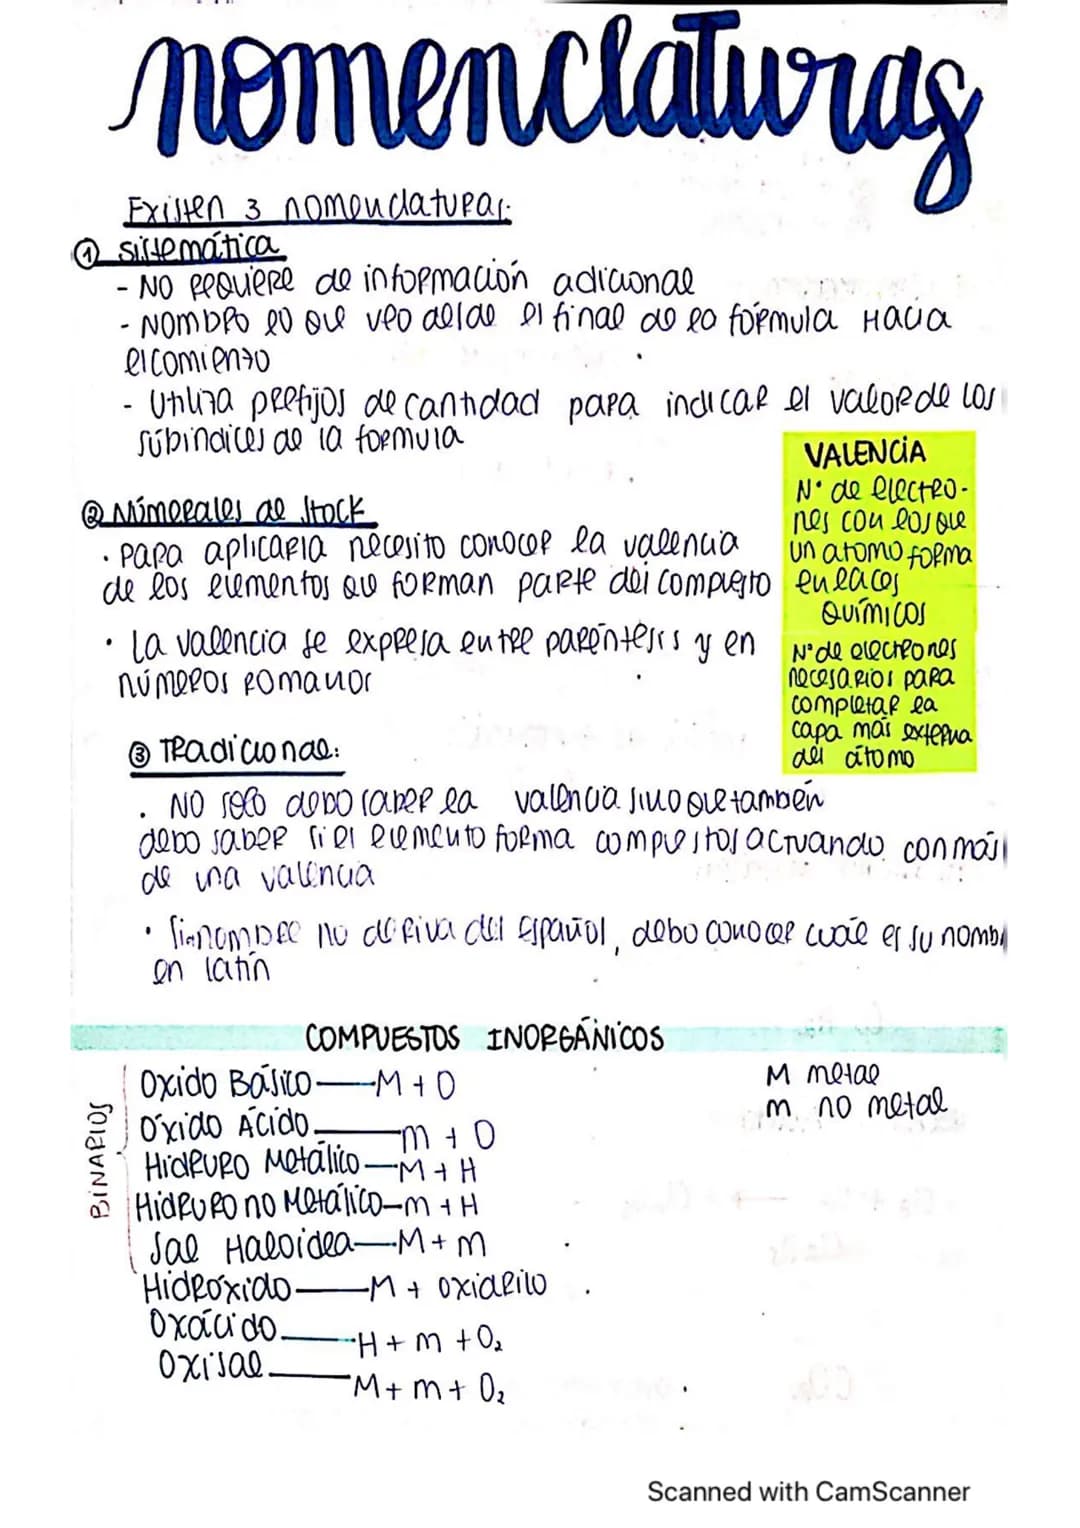 nomenclaturas
Existen 3 nomenclaturas:
① sistemática
- NO requiere de información adicional
- NOMBRO lo que veo desde el final de la fórmula Hacia
el comienzo
- Utiliza prefijos de cantidad para indicar el valor de los
súbindices de la formula
VALENCiA
N° de electro-
nes con los que
un atomo forma
enlaces
Químicos
N° de electrones
necesarios para
completar la
capa más externa
del átomo
② Númerales de Stock
· Para aplicarla necesito conocer la valencia
de los elementos que forman parte del compuesto
· La valencia se expresa entre paréntesis y en
números romanos
③ Tradicional:
· NO solo debo saber la valencia sino que tambén
debo saber si el elemento forma compuestos actuando con más
de una valencia
· Si nombre no deriva del Español, debo conocer cuál es su nomb
en latín
COMPUESTOS INORGÁNICOS
M metal
m no metal
BINARIOS
Oxido Básico — M + O
Óxido Ácido — m + O
Hidruro Metálico — M + H
Hidruro no Metálico — m + H
Sal Haloidea — M + m
Hidróxido — M + oxidrilo
Oxácido — H + m + O₂
Oxisal — M + m + O₂
Scanned with CamScanner